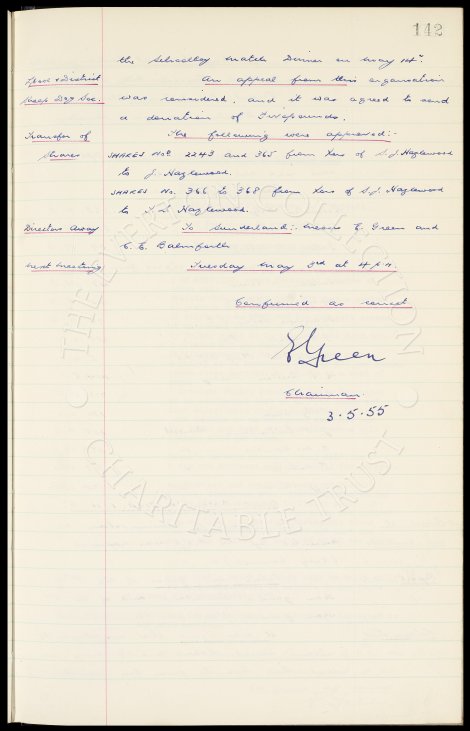 142
the Schoolboy match Dinner on May 14th.
L'pool & District
Sheep Dog Soc.
An appeal from this organisation
was considered, and it was agreed to send
a donation of Two pounds.
Transfer of
Shares
The following were approved:-
SHARES Nos. 2243 and 365 from Exors of S.J. Hazlewood
to J. Hazlewood.
SHARES No. 366 to 368 from Exors of S.J. Hazlewood
to Hazlewood.
Directors Away
To Sunderland:- Messrs E. Green and
C. E. Balmforth
Next Meeting
Tuesday May 3rd at 4 p.m.
Confirmed as correct
E Green
Chairman.
3.5.55
THE EVERTON COLLECTION
CHARITABLE TRUST